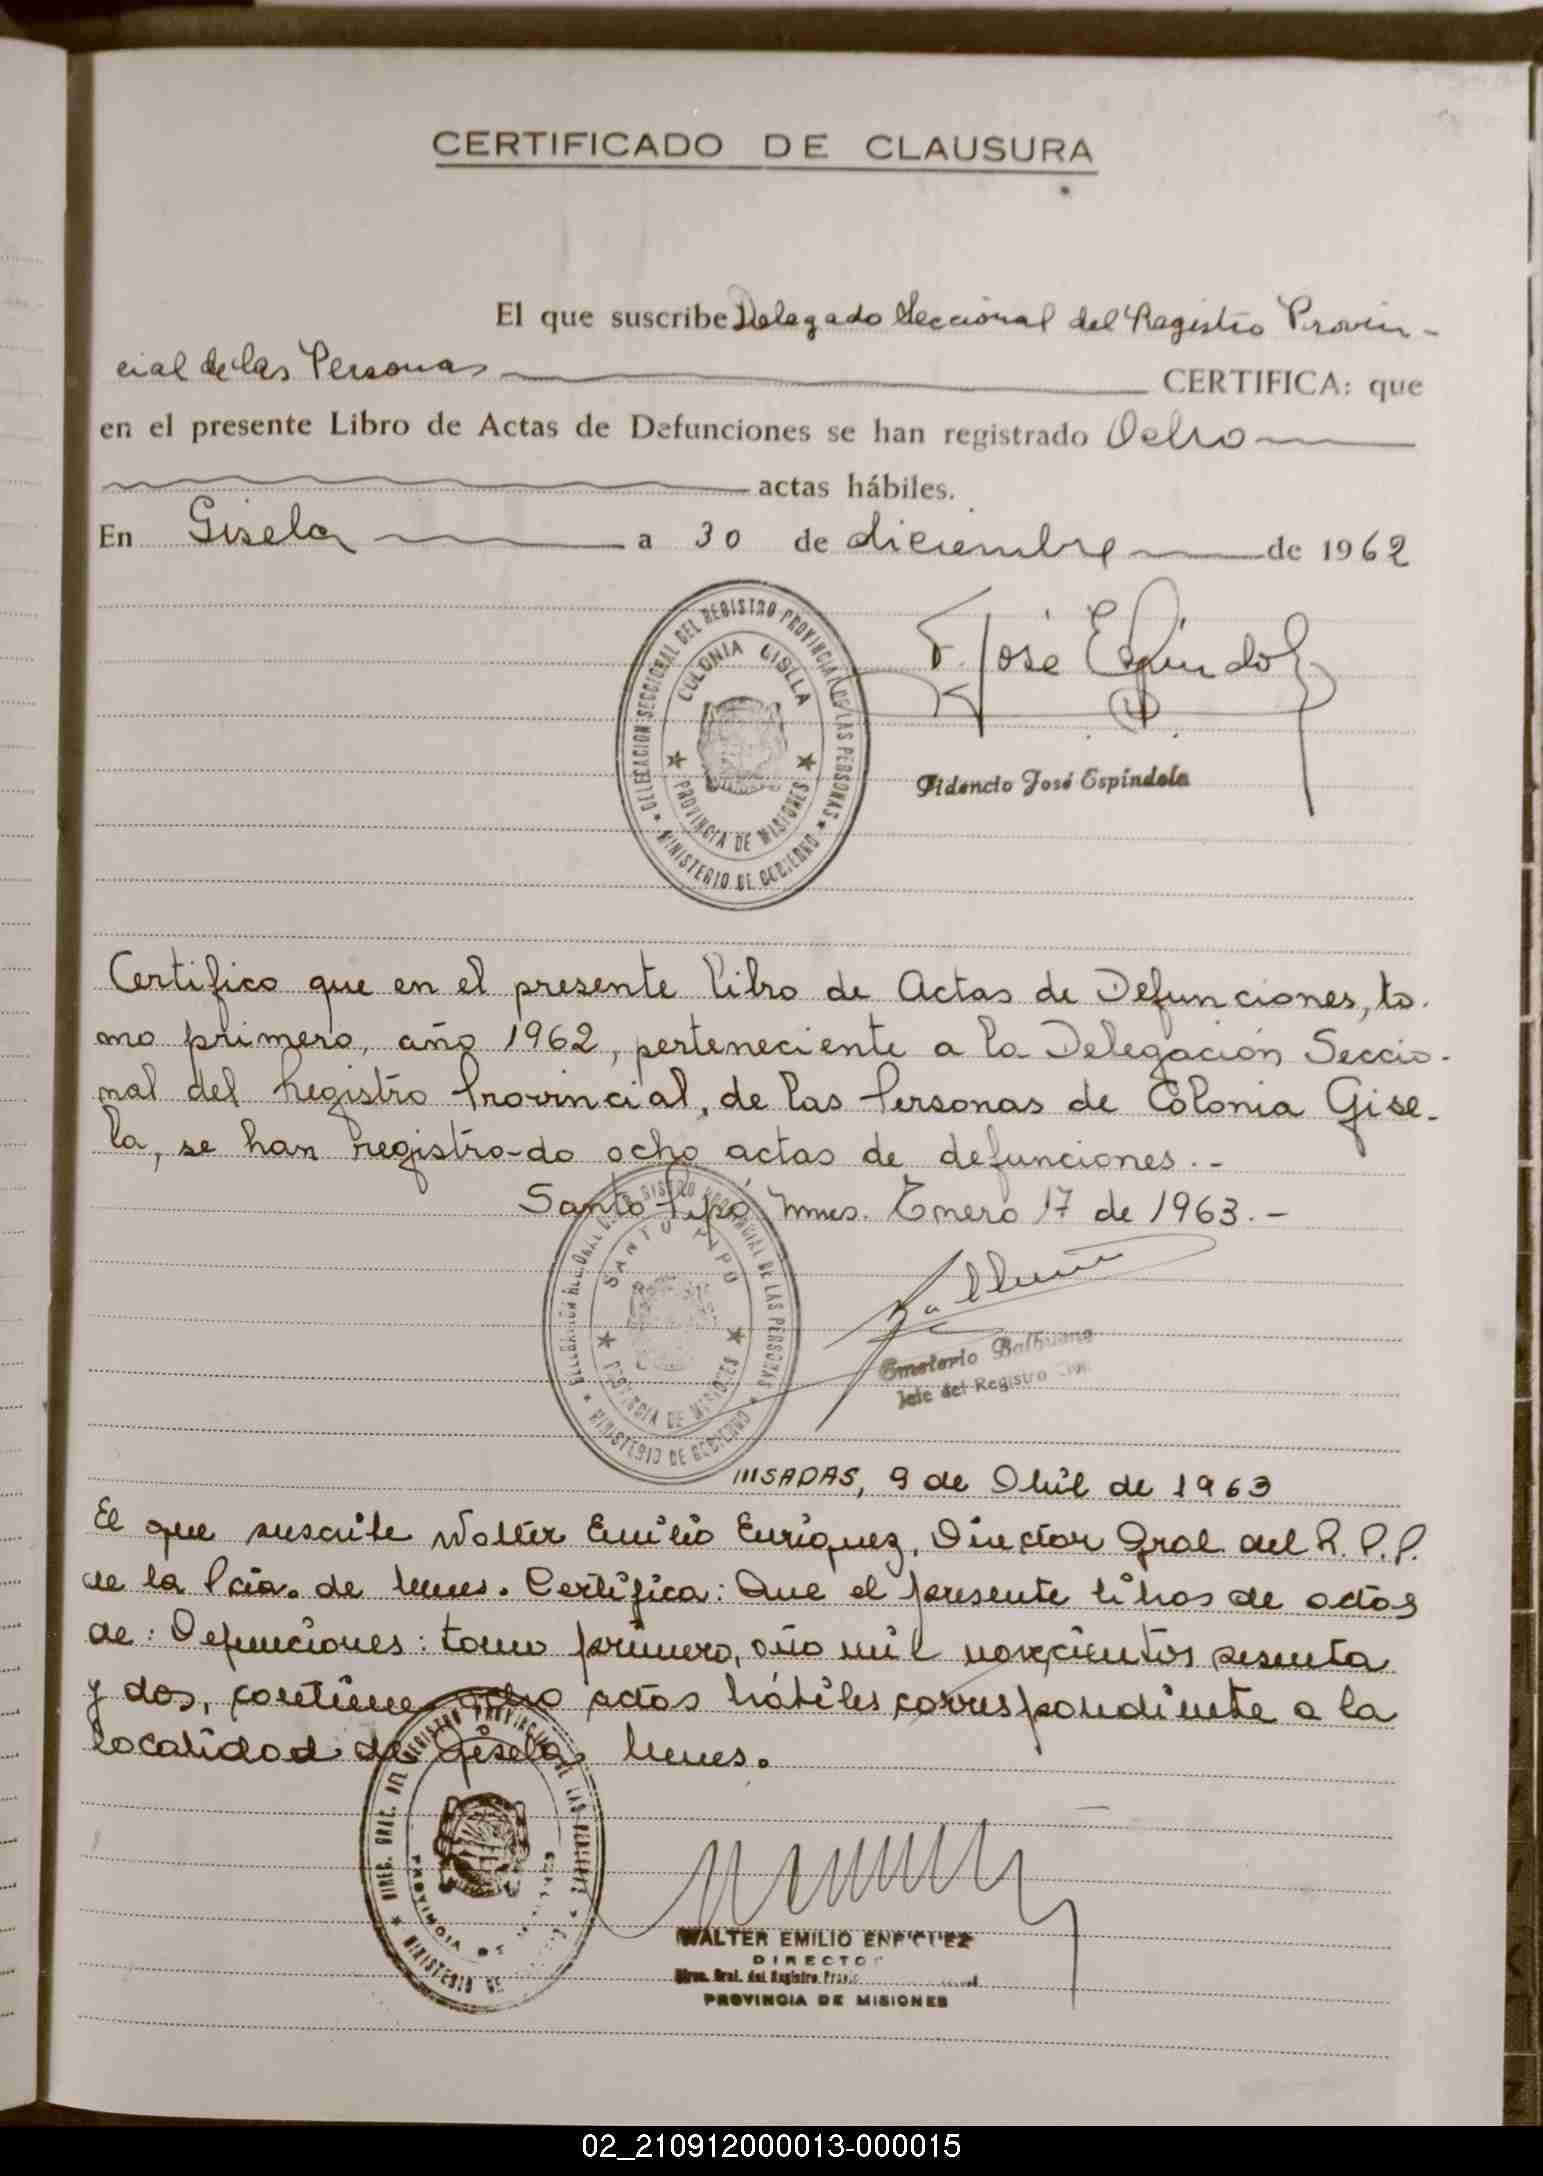 CERTIFICADO DE CLAUSURA
El que suscribe Delegado Seccional del Registro Provin-
cial de las Personas CERTIFICA: que
en el presente Libro de Actas de Defunciones se han registrado Ocho
actas hábiles.
En Gisela a 30 de diciembre de 1962
DELEGACION SECCIONAL DEL REGISTRO PROVINCIAL DE LAS PERSONAS
COLONIA GISELA
PROVINCIA DE MISIONES
MINISTERIO DE GOBIERNO
F. José Espíndola
Fidencio José Espíndola
Certifico que en el presente libro de Actas de Defunciones, to-
mo primero, año 1962, perteneciente a la Delegación Seccio-
nal del Registro Provincial, de las Personas de Colonia Gise-
la, se han registrado ocho actas de defunciones.-
Santo Pipó, Mnes. Enero 17 de 1963.-
DE LAS PERSONAS
SANTO PIPO
PROVINCIA DE MISIONES
MINISTERIO DE GOBIERNO
Emeterio Balbuena
Jefe del Registro Civil
SADAS, 9 de Abril de 1963
El que suscribe Walter Emilio Enriquez, Director Gral del R. P. P.
de la Pcia. de Mnes. Certifica: Que el presente libros de actas
de: Defunciones: tomo primero, año mil novecientos sesenta
y dos, contiene ocho actas hábiles correspondiente a la
localidad de Gisela, Mnes.
DIREC. GRAL. DEL REGISTRO PROVINCIAL DE LAS PERSONAS
PROVINCIA DE
MINISTERIO DE
WALTER EMILIO ENRIQUEZ
DIRECTOR
Direc. Gral. del Registro
PROVINCIA DE MISIONES
02_210912000013-000015